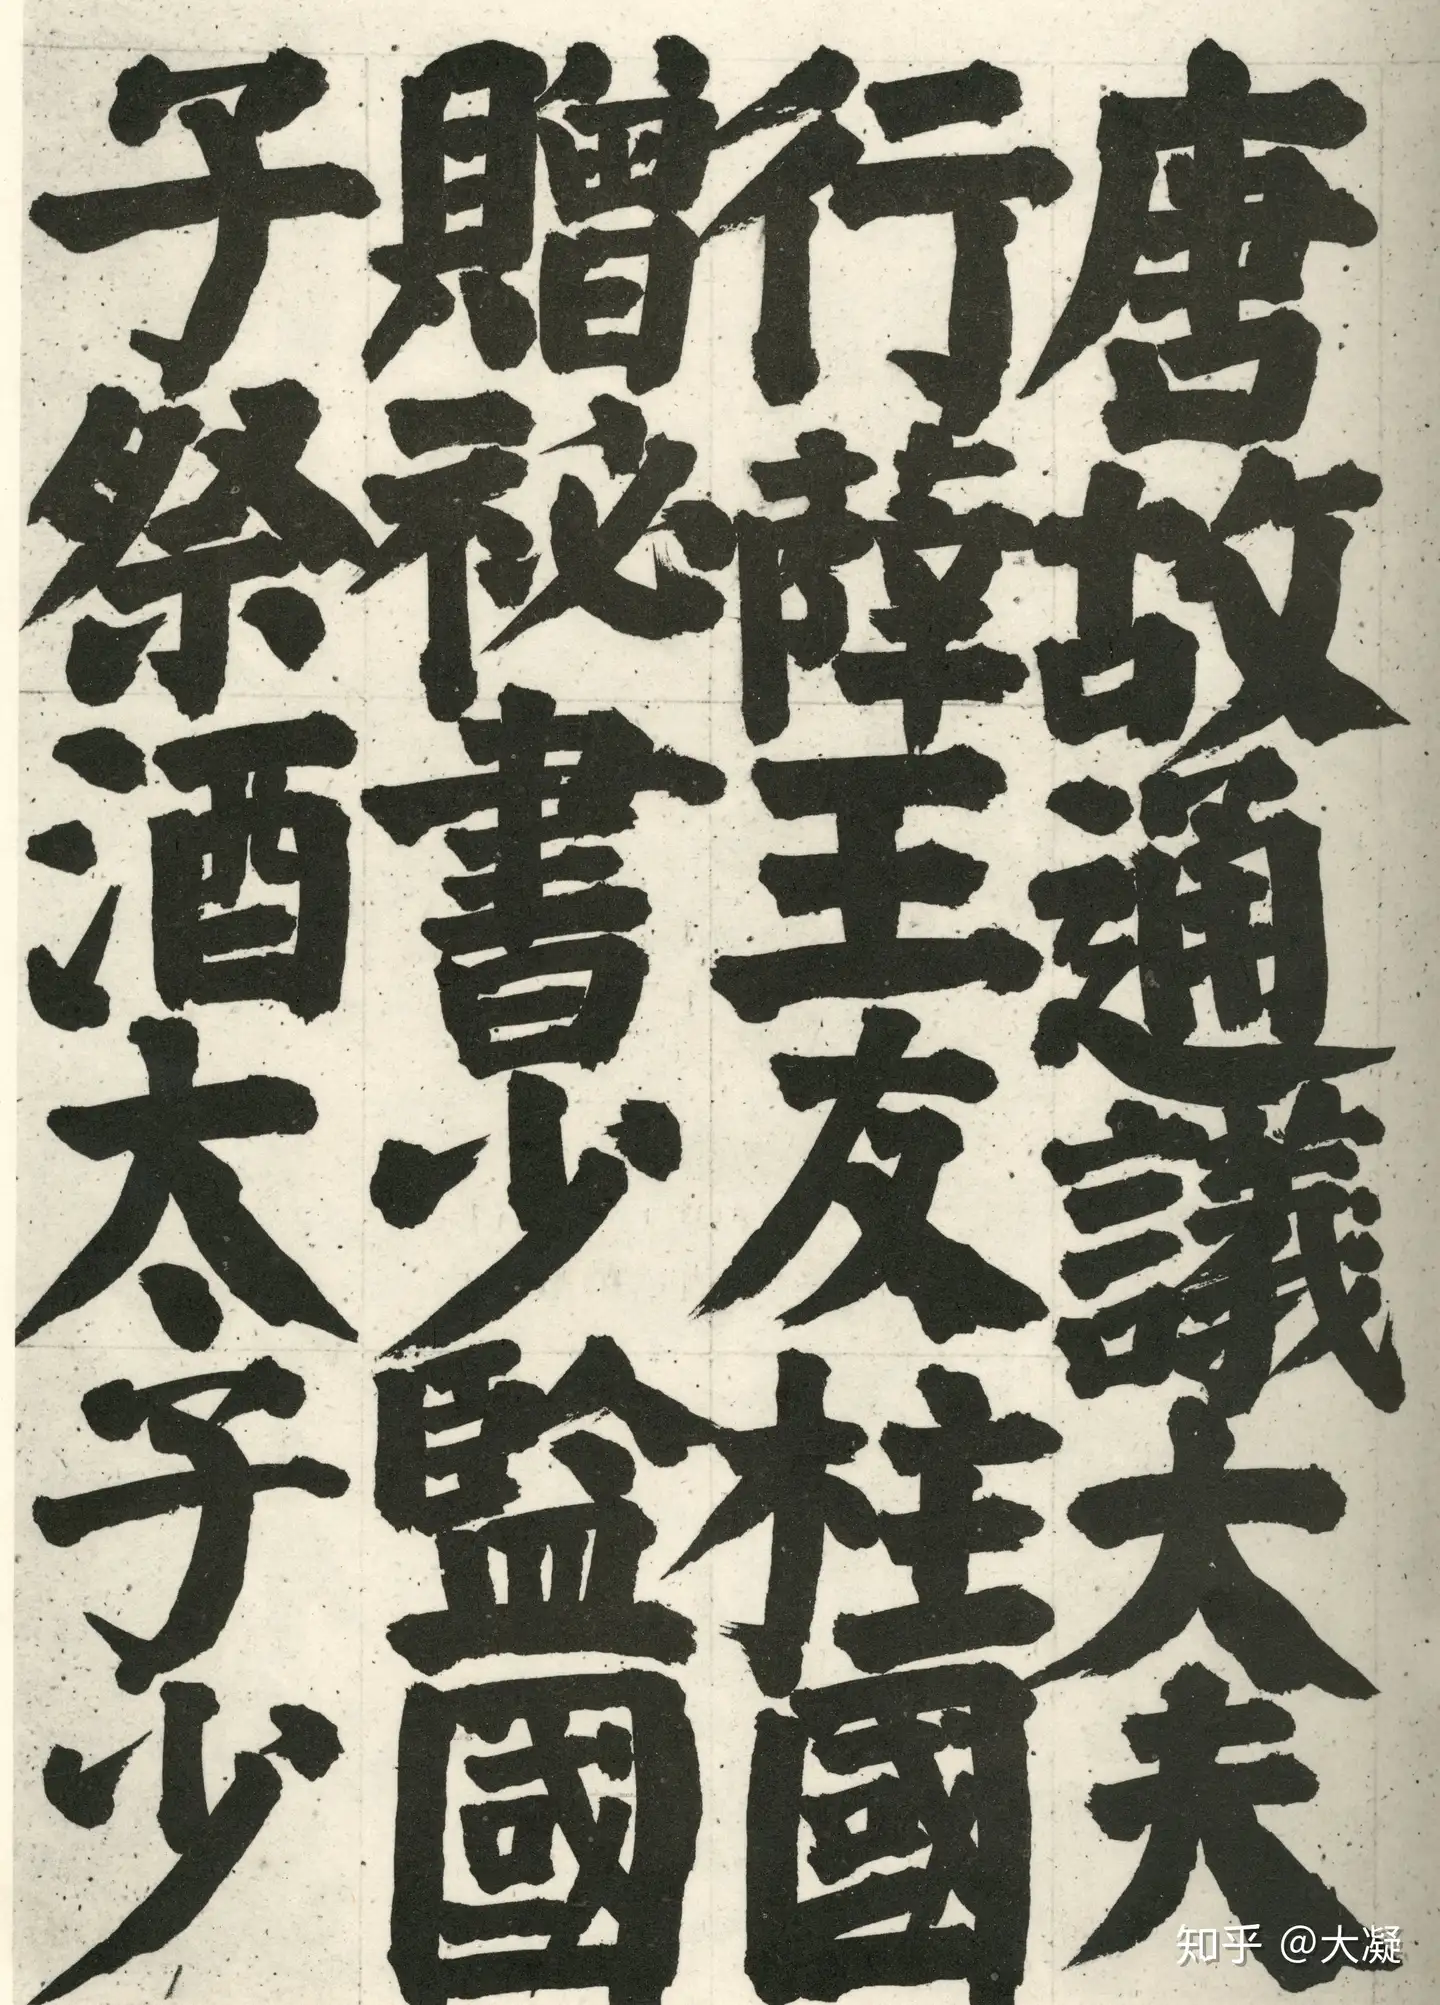 唐故通議大夫
行薛王友柱國
贈祕書少監國
子祭酒太子少
知乎 @大凝